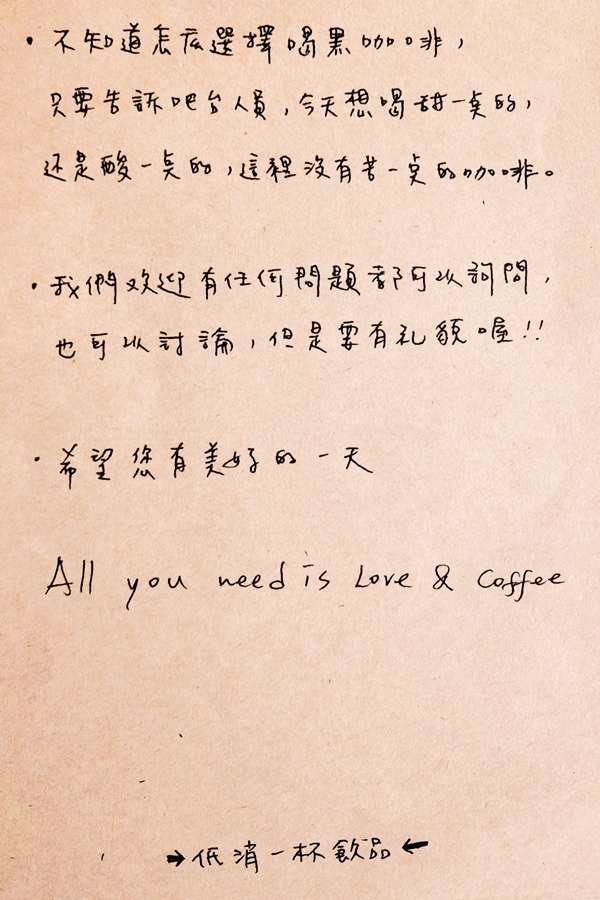 • 不知道怎広選擇喝黑咖啡，
只要告訴吧台人員，今天想喝甜一点的，
还是酸一点的，這裡沒有苦一点的咖啡。
• 我們欢迎有任何問題都可以詢問，
也可以討論，但是要有礼貌喔!!
• 希望您有美好的一天
All you need is Love & Coffee
→低消一杯飲品←